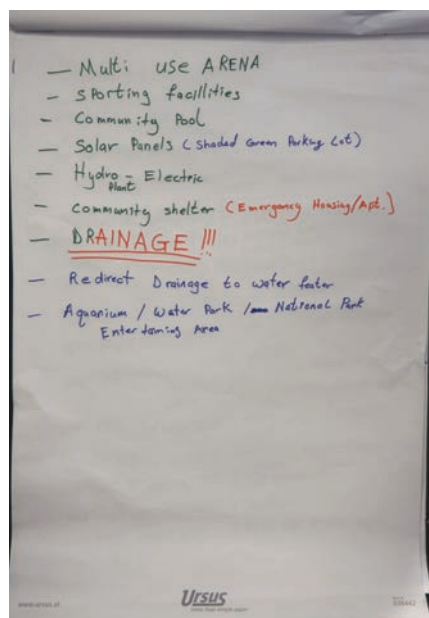 — Multi use ARENA
- Sporting facillities
- Community Pool
- Solar Panels (Shaded Green Parking Lot)
- Hydro - Electric
Plant
- Community shelter (Emergency Housing/Apt.)
- DRAINAGE !!!
- Redirect Drainage to water feater
- Aquarium / Water Park / National Park
Entertaining Area
www.ursus.sk
Ursus